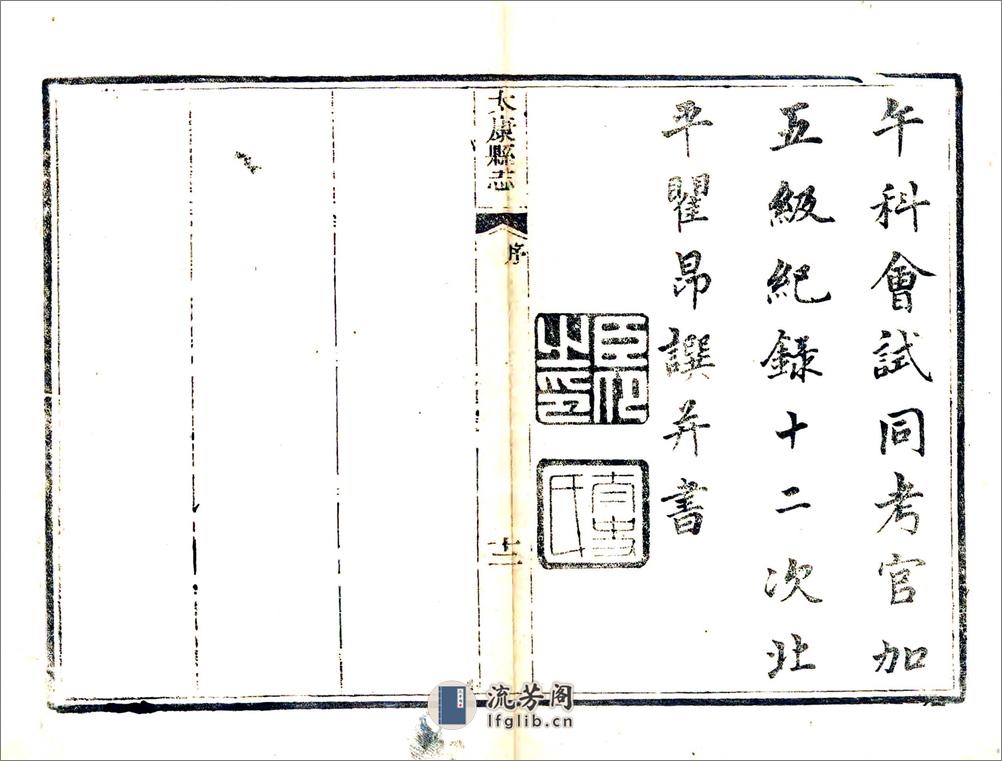 午科會試同考官加
五級紀錄十二次北
平瞿昂撰并書
太康縣志
序
十二
流芳阁
lfglib.cn